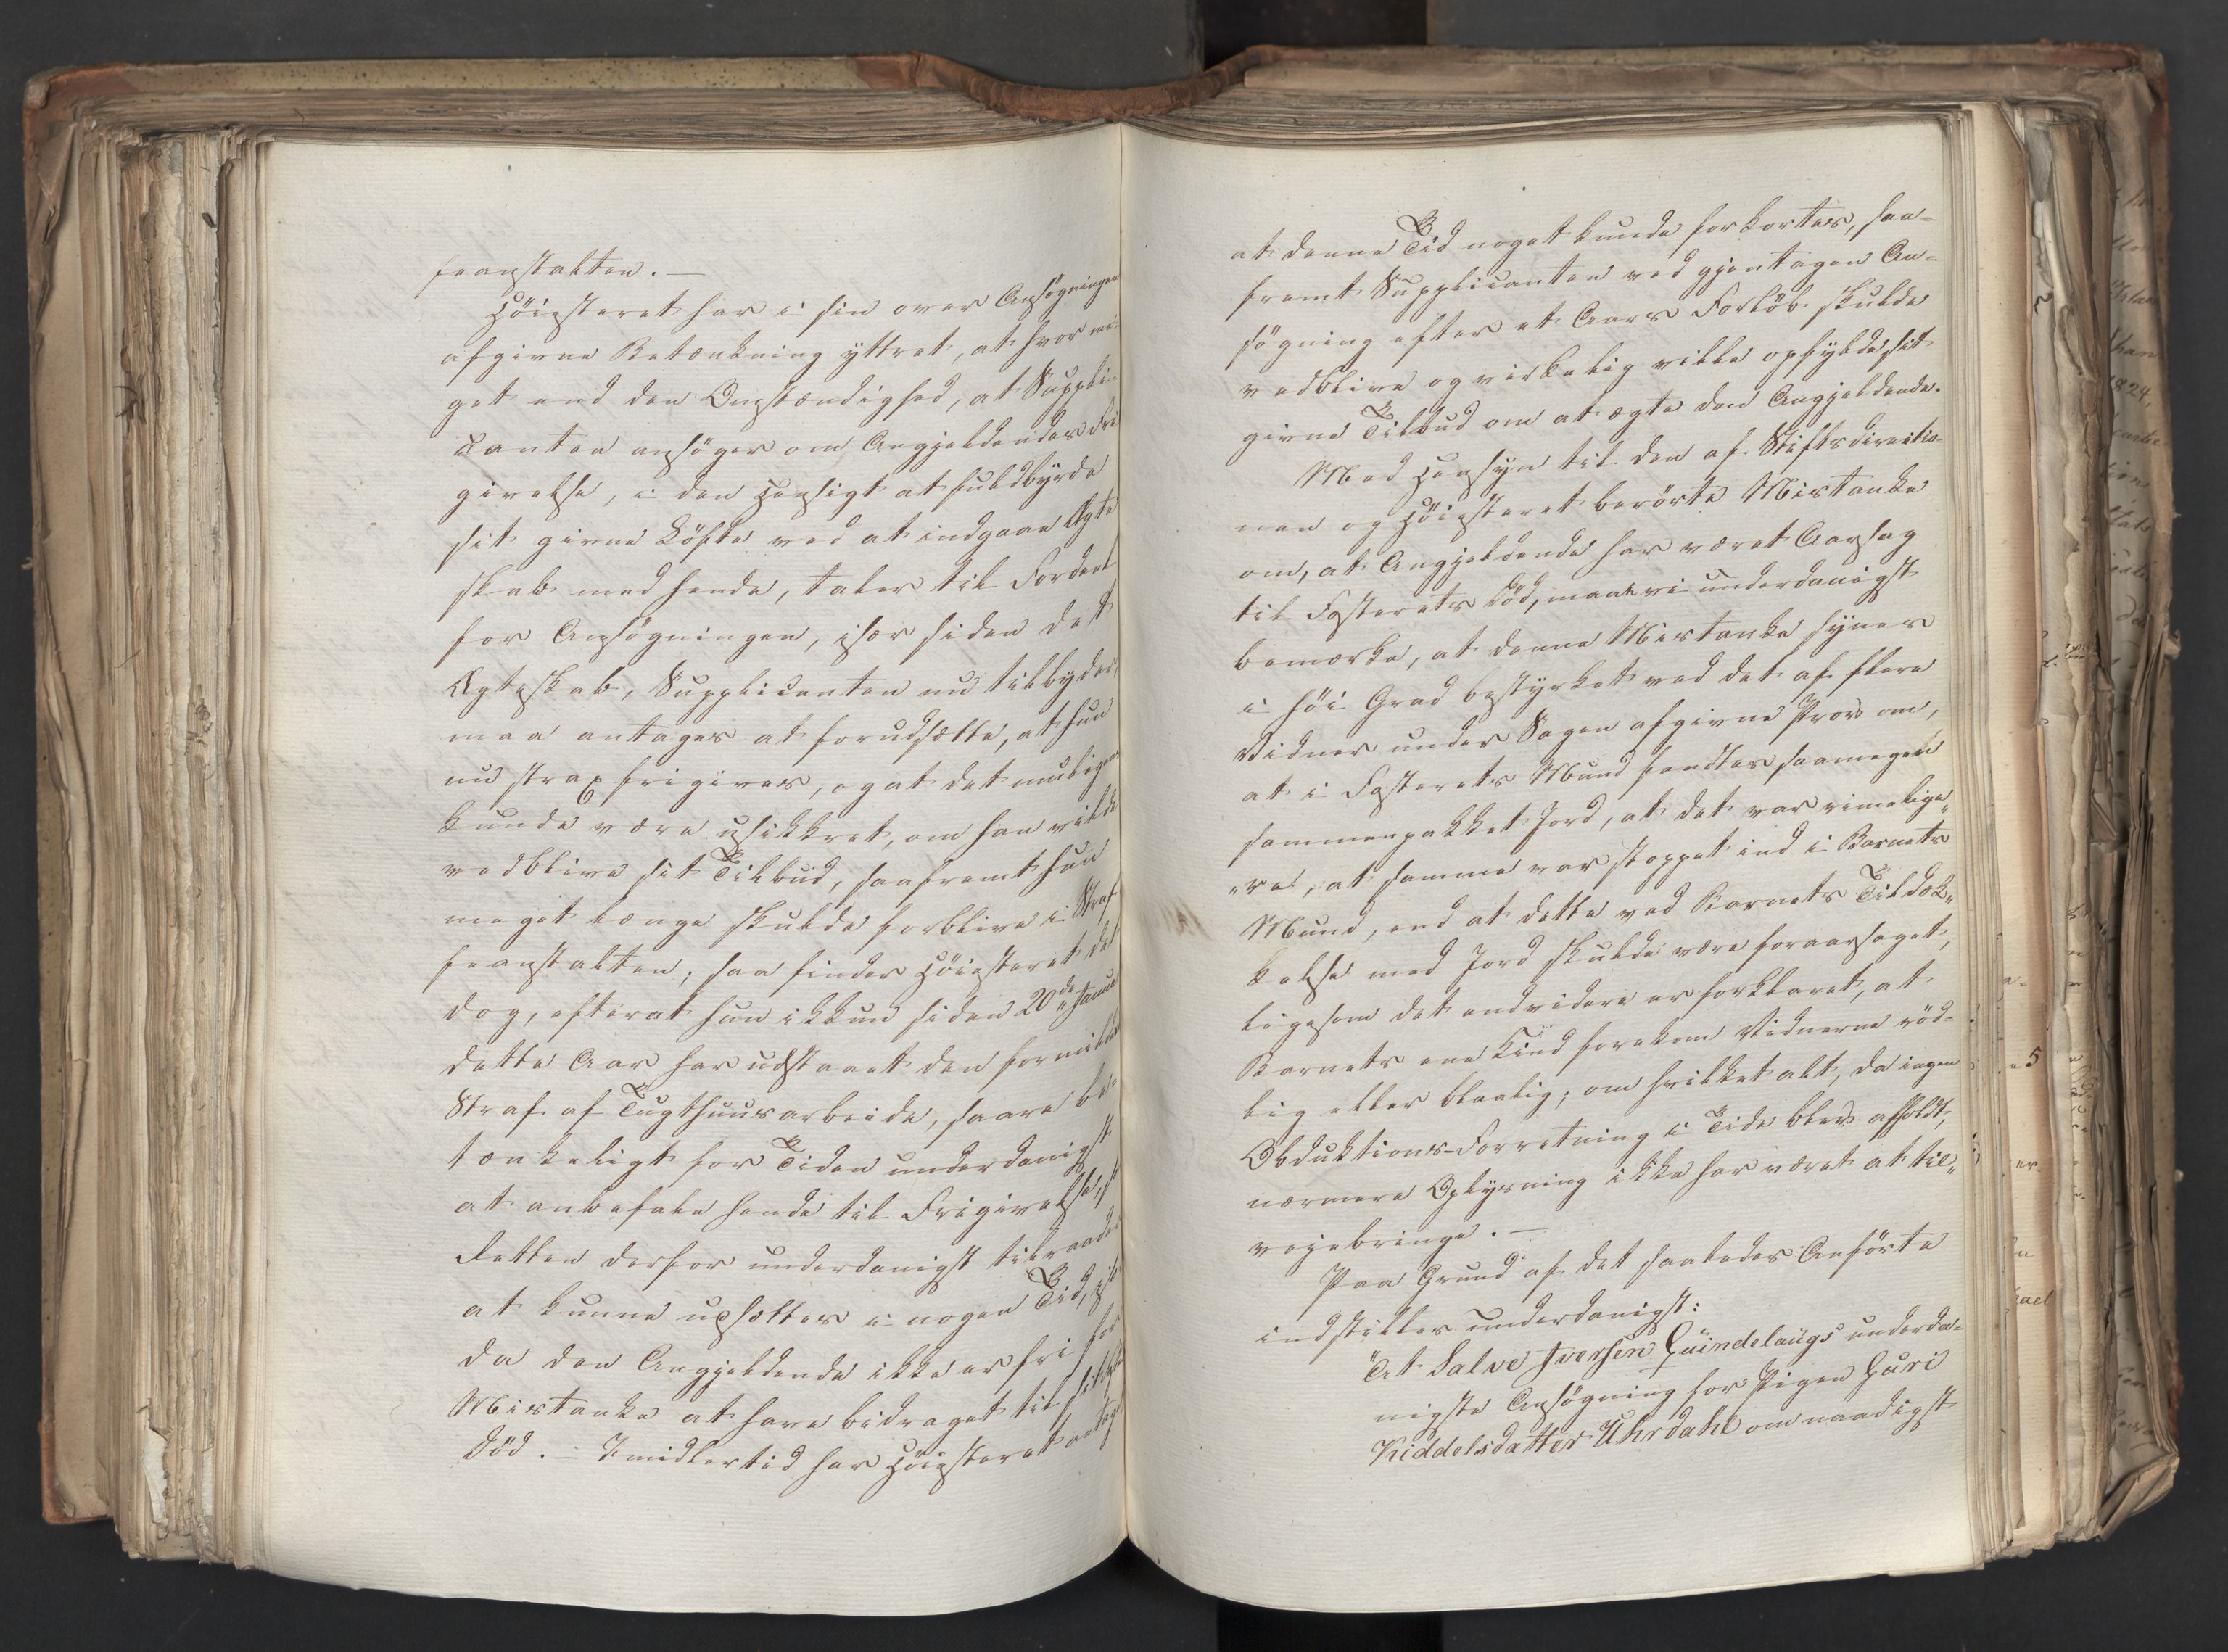 feanstalten. —
Höiesteret har i sin over Ansøgningen
afgivne Betænkning yttret, at hvor me-
get end den Omstændighed, at Suppli-
canten ansøger om Angjeldendes Fri
givelse, i den Hensigt at fuldbyrde
sit givne Løfte ved at indgaae Ægte
skab med hende, taler til Fordeel
for Ansøgningen, især siden det
Ægteskab, Supplicanten nu tilbyder,
maa antages at forudsætte, at hun
nu strax frigives, og at det muligen
kunde være usikkret, om han vilde
vedblive sit Tilbud, saafremt hun
meget længe skulde forblive i Straf
feanstalten; saa finder Höiesteret det
dog, efterat hun ikkun siden 20de Januar
dette Aar har udstaaet den formildede
Straf af Tugthuusarbeide, saare be-
tænkeligt for Tiden underdanigst
at anbefale hende til Frigivelse,
Retten derfor underdanigst tilraader
at kunne udsættes i nogen Tid,
da den Angjeldende ikke er fri for
Mistanke at have bidraget til
Död. – Imidlertid har Höiesteret antaget
at denne Tid noget kunde forkortes, saa-
fremt Supplicanten ved gjentagen An-
søgning efter et Aars Forløb skulde
vedblive og virkelig ville opfylde sit
givne Tilbud om at ægte den Angjeldende.
Med Hensyn til den af Stiftsdirectio-
nen og Höiesteret berørte Mistanke
om, at Angjeldende har været Aarsag
til Fosterets Död, maae vi underdanigst
bemærke, at denne Mistanke synes
i høi Grad bestyrket ved det af flere
Vidner under Sagen afgivne Prov om,
at i Fosterets Mund fandtes saamegen
sammenpakket Jord, at det var rimelige„
„re, at samme var stoppet ind i Barnets
Mund, end at dette ved Barnets Tildæk„
kelse med Jord skulde være foraarsaget,
ligesom det endvidere er forklaret, at
Barnets ene Kind forekom Vidnerne röd-
lig eller blaalig; om hvilket alt, da ingen
Obduktions-Forretning i Tide blev afholdt,
nærmere Oplysning ikke har været at til„
veiebringe. —
Paa Grund af det saaledes Anförte
indstilles underdanigst:
"At Salve Iversen Quindelaugs underda-
nigste Ansøgning for Pigen Guri
Kiddelsdatter Uhrdahl om naadigst